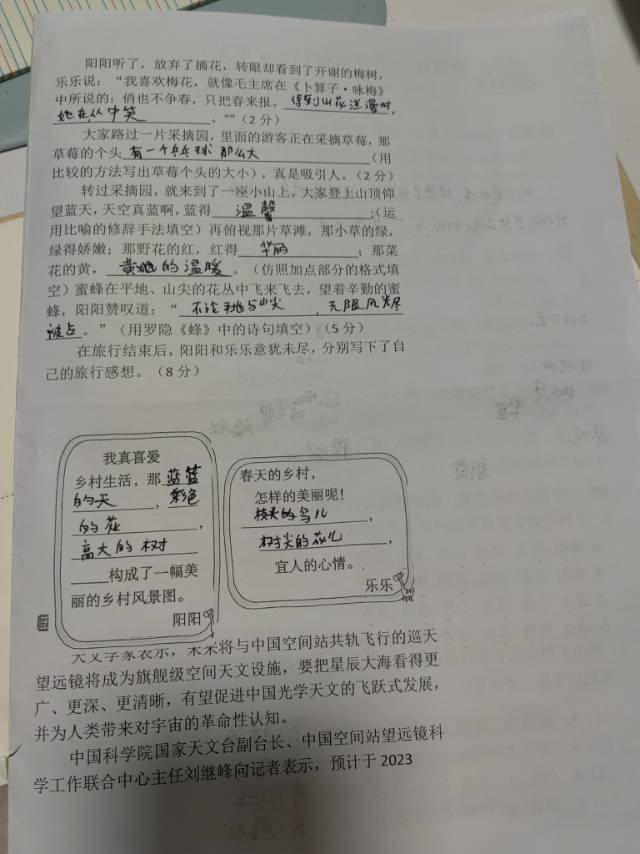 阳阳听了，放弃了摘花，转眼却看到了开谢的梅树，
乐乐说：“我喜欢梅花，就像毛主席在《卜算子·咏梅》
中所说的：俏也不争春，只把春来报。待到山花烂漫时，
她在丛中笑。””（2分）
大家路过一片采摘园，里面的游客正在采摘草莓，那
草莓的个头有一个乒乓球那么大（用
比较的方法写出草莓个头的大小），真是吸引人。（2分）
转过采摘园，就来到了一座小山上。大家登上山顶仰
望蓝天，天空真蓝啊，蓝得温馨；（运
用比喻的修辞手法填空）再俯视那片草滩，那小草的绿，
绿得娇嫩；那野花的红，红得华丽；那菜
花的黄，黄地的温暖。（仿照加点部分的格式填
空）蜜蜂在平地、山尖的花丛中飞来飞去，望着辛勤的蜜
蜂，阳阳赞叹道：“不论平地与山尖，无限风光尽
被占。”（用罗隐《蜂》中的诗句填空）（5分）
在旅行结束后，阳阳和乐乐意犹未尽，分别写下了自
己的旅行感想。（8分）
我真喜爱
乡村生活，那蓝蓝
的天，彩色
的花，
高大的树
构成了一幅美
丽的乡村风景图。
阳阳
春天的乡村，
怎样的美丽呢！
枝头的鸟儿，
树尖的花儿，
宜人的心情。
乐乐
天文学家表示，未来将与中国空间站共轨飞行的巡天
望远镜将成为旗舰级空间天文设施，要把星辰大海看得更
广、更深、更清晰，有望促进中国光学天文的飞跃式发展，
并为人类带来对宇宙的革命性认知。
中国科学院国家天文台副台长、中国空间站望远镜科
学工作联合中心主任刘继峰向记者表示，预计于2023